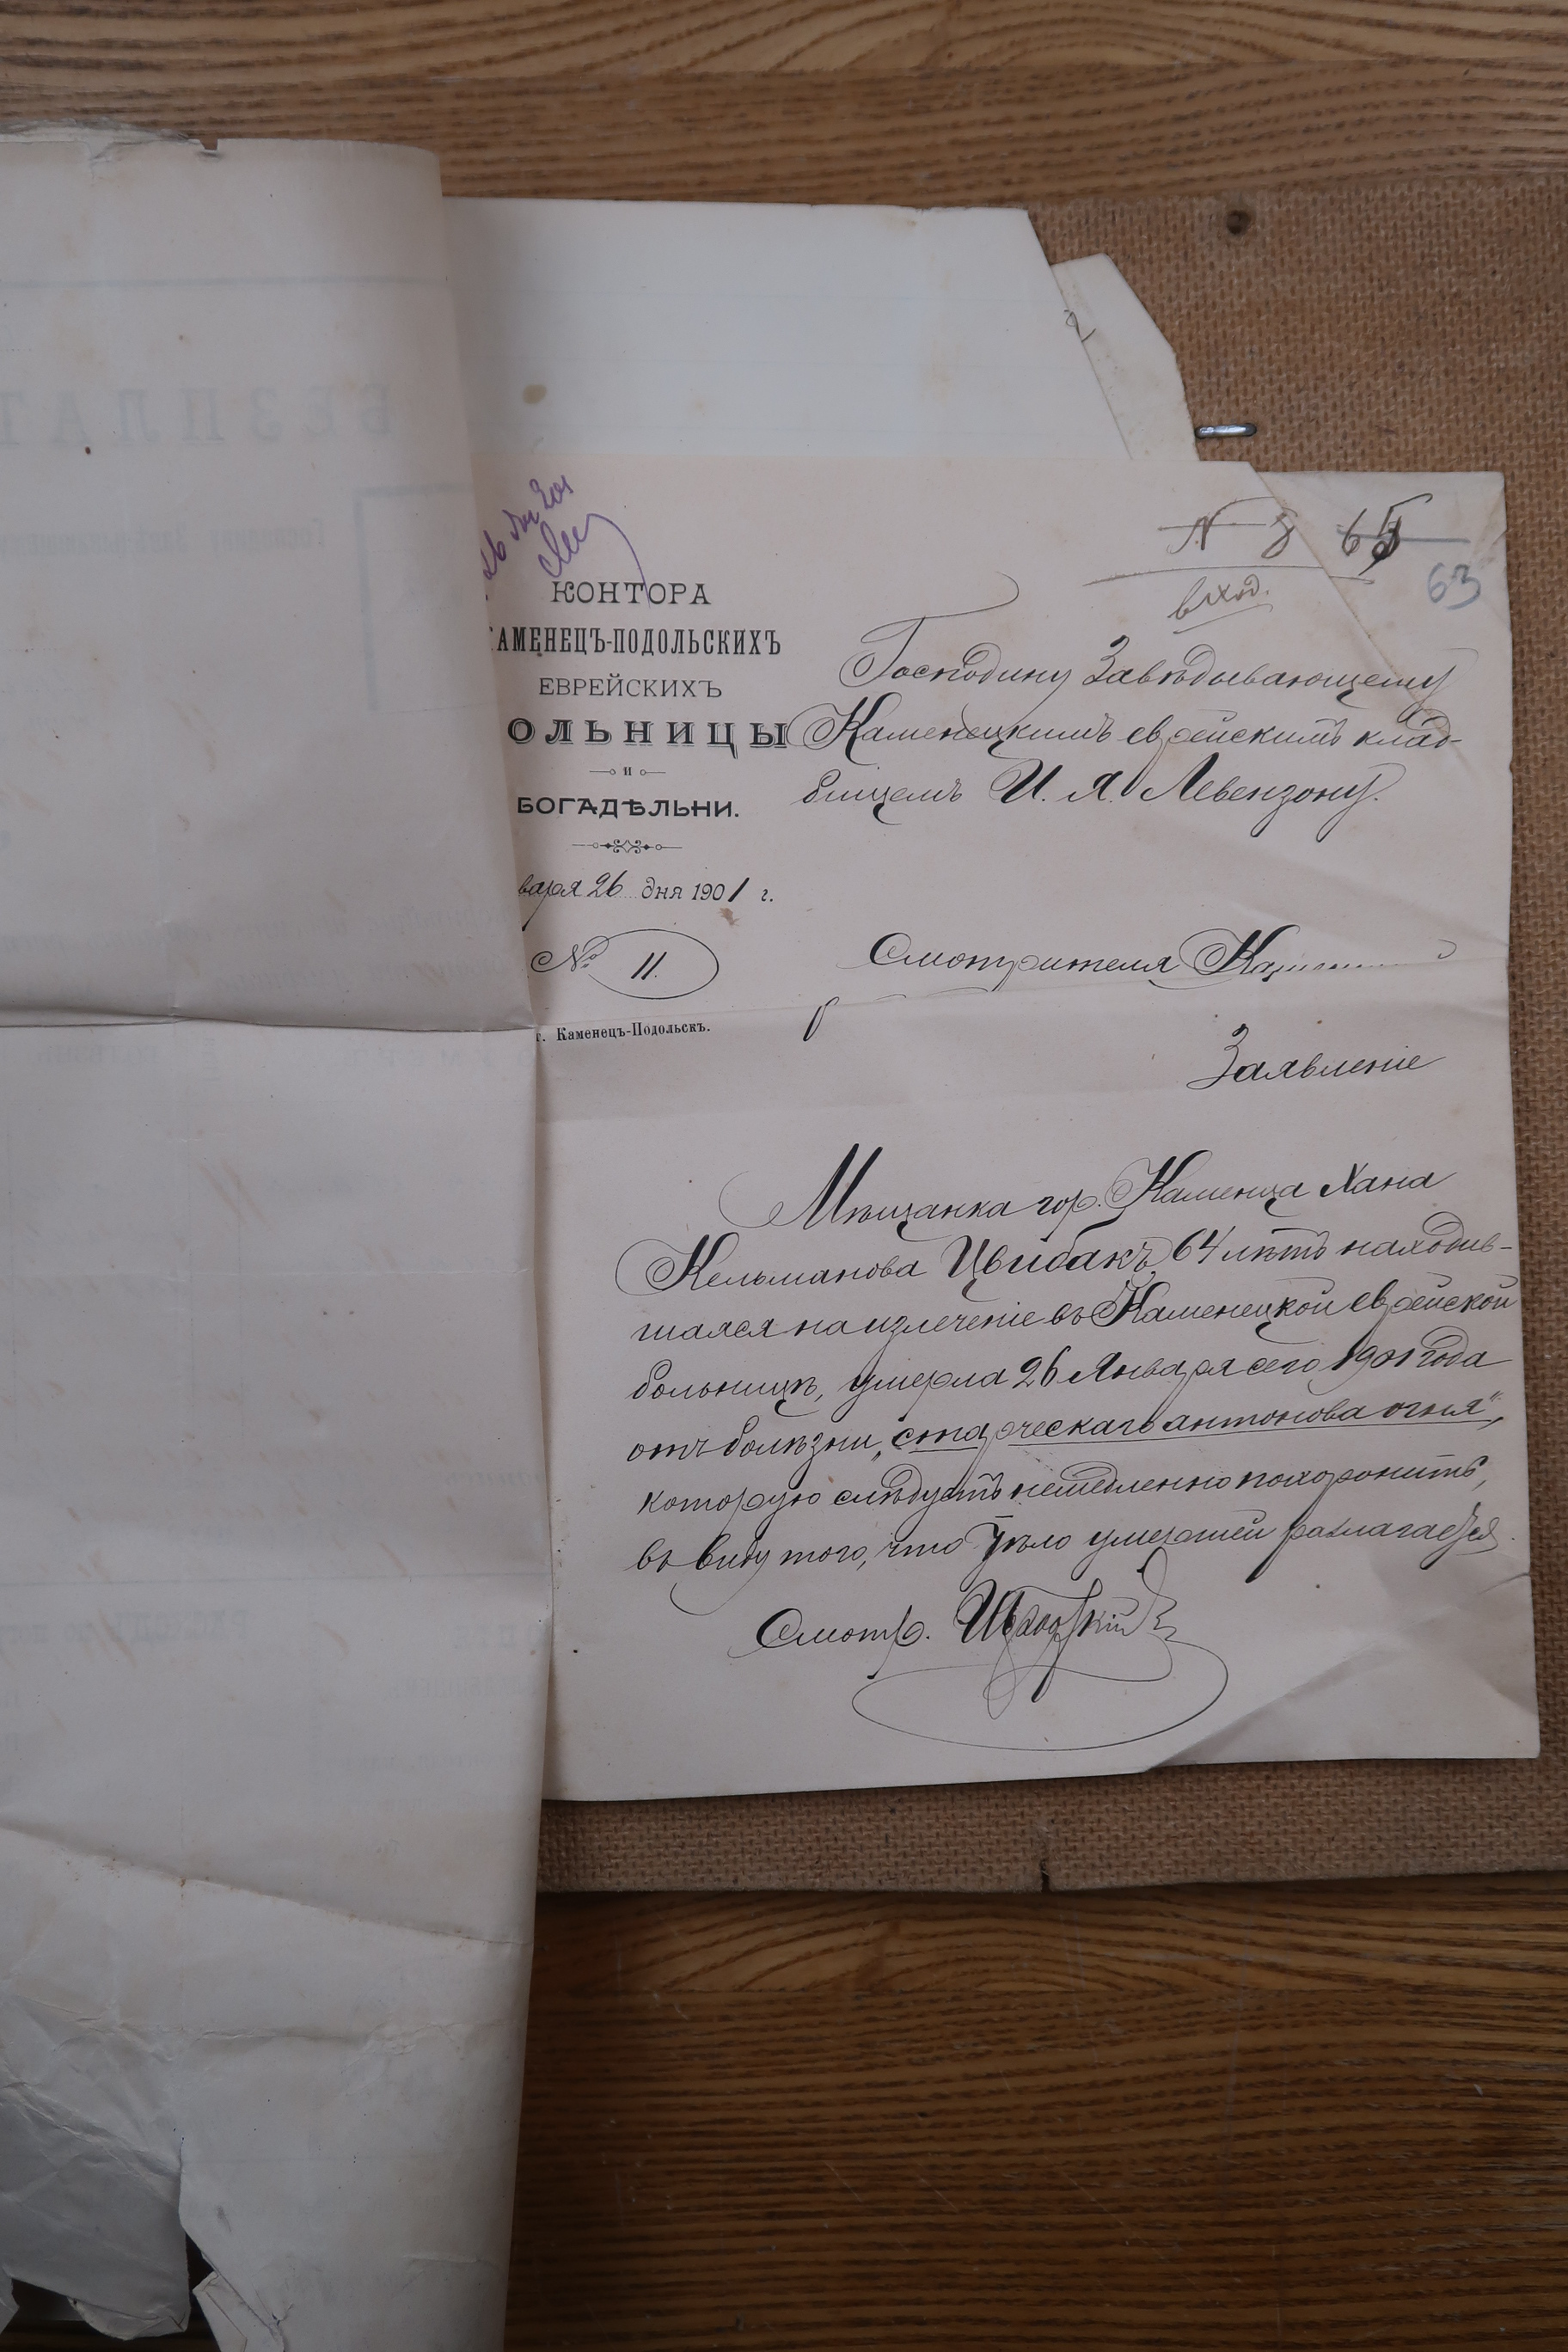 КОНТОРА
КАМЕНЕЦЪ-ПОДОЛЬСКИХЪ
ЕВРЕЙСКИХЪ
ОЛЬНИЦЫ
И
БОГАДѢЛЬНИ.
варя 26 дня 1901 г.
№ 11.
г. Каменецъ-Подольскъ.
N 8 65
63
вход.
Господину Завѣдывающему
Каменецкимъ еврейскимъ клад-
бищемъ И. Я. Левензону.
Смотрителя
Заявленіе
Мѣщанка гор. Каменца Хана
Кельманова Цвибакъ, 64 лѣтъ находив-
шаяся на излеченіе въ Каменецкой еврейской
больницѣ, умерла 26 Января сего 1901 года
отъ болѣзни „старческаго антонова огня",
которую слѣдуетъ немедленно похоронить,
въ виду того, что тѣло умершей разлагается.
Смотр.
БЕЗПЛАТ